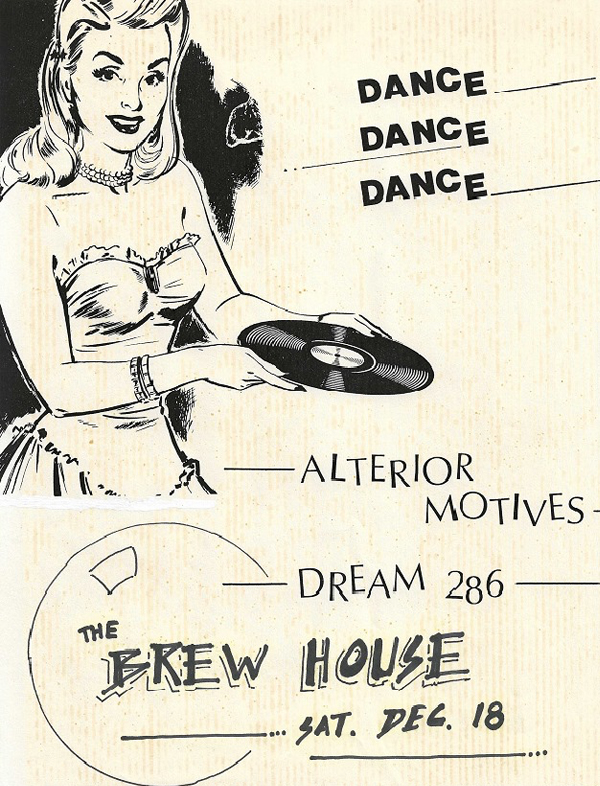 DANCE
DANCE
DANCE
ALTERIOR
MOTIVES
DREAM 286
THE
BREW HOUSE
SAT. DEC. 18